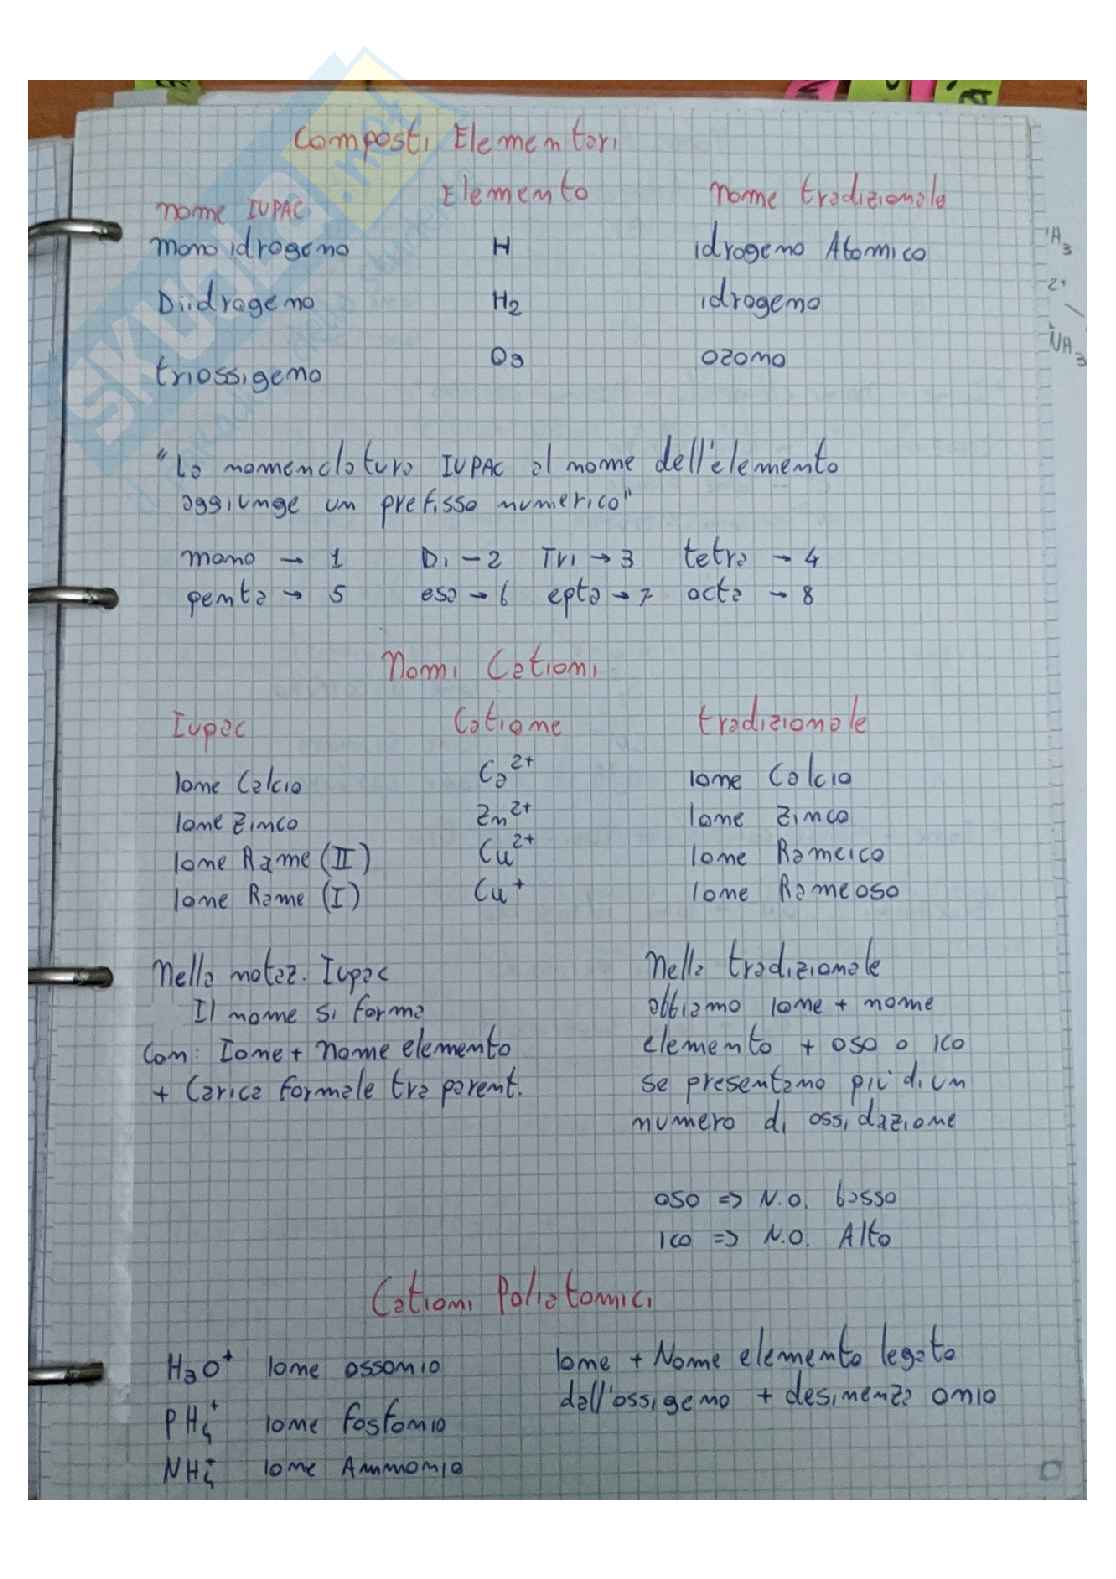 Composti Elementari
Nome IUPAC Elemento Nome tradizionale
Mono idrogeno H idrogeno Atomico
Diidrogeno H₂ idrogeno
triossigeno O₃ ozono
"La nomenclatura IUPAC al nome dell'elemento
aggiunge un prefisso numerico"
mono → 1 Di → 2 Tri → 3 tetra → 4
penta → 5 esa → 6 epta → 7 octa → 8
Nomi Cationi
Iupac Catione tradizionale
Ione Calcio Ca²⁺ Ione Calcio
Ione Zinco Zn²⁺ Ione Zinco
Ione Rame (II) Cu²⁺ Ione Rameico
Ione Rame (I) Cu⁺ Ione Rameoso
Nella notaz. Iupac
Il nome si forma
Con: Ione + nome elemento
+ Carica formale tra parent.
Nella tradizionale
abbiamo Ione + nome
elemento + oso o ico
se presentano più di un
numero di ossidazione
oso => N.O. basso
ico => N.O. Alto
Cationi Poliatomici
H₃O⁺ Ione ossonio
PH₄⁺ Ione fosfonio
NH₄⁺ Ione Ammonio
Ione + Nome elemento legato
dall'ossigeno + desinenza onio